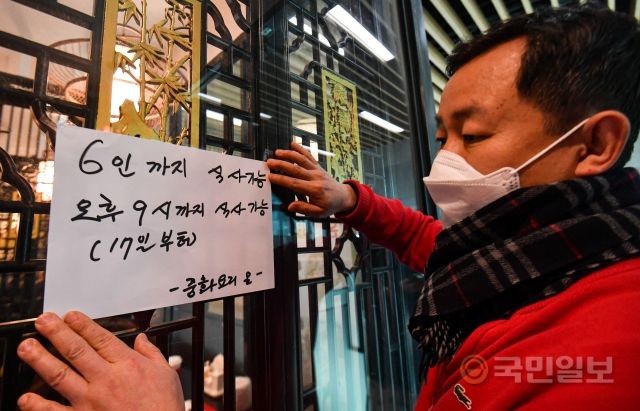 6인 까지 식사가능
오후 9시까지 식사가능
(17일 부터)
- 중화요리 온 -
국민일보